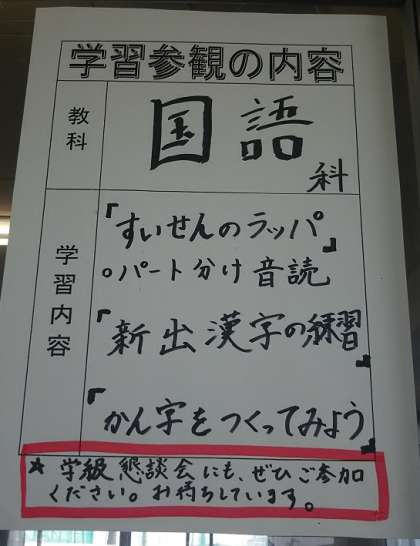 学習参観の内容
教科
国語科
学習内容
「すいせんのラッパ」
。パート分け音読
「新出漢字の練習」
「かん字をつくってみよう」
☆ 学級懇談会にも、ぜひご参加
ください。お待ちしています。